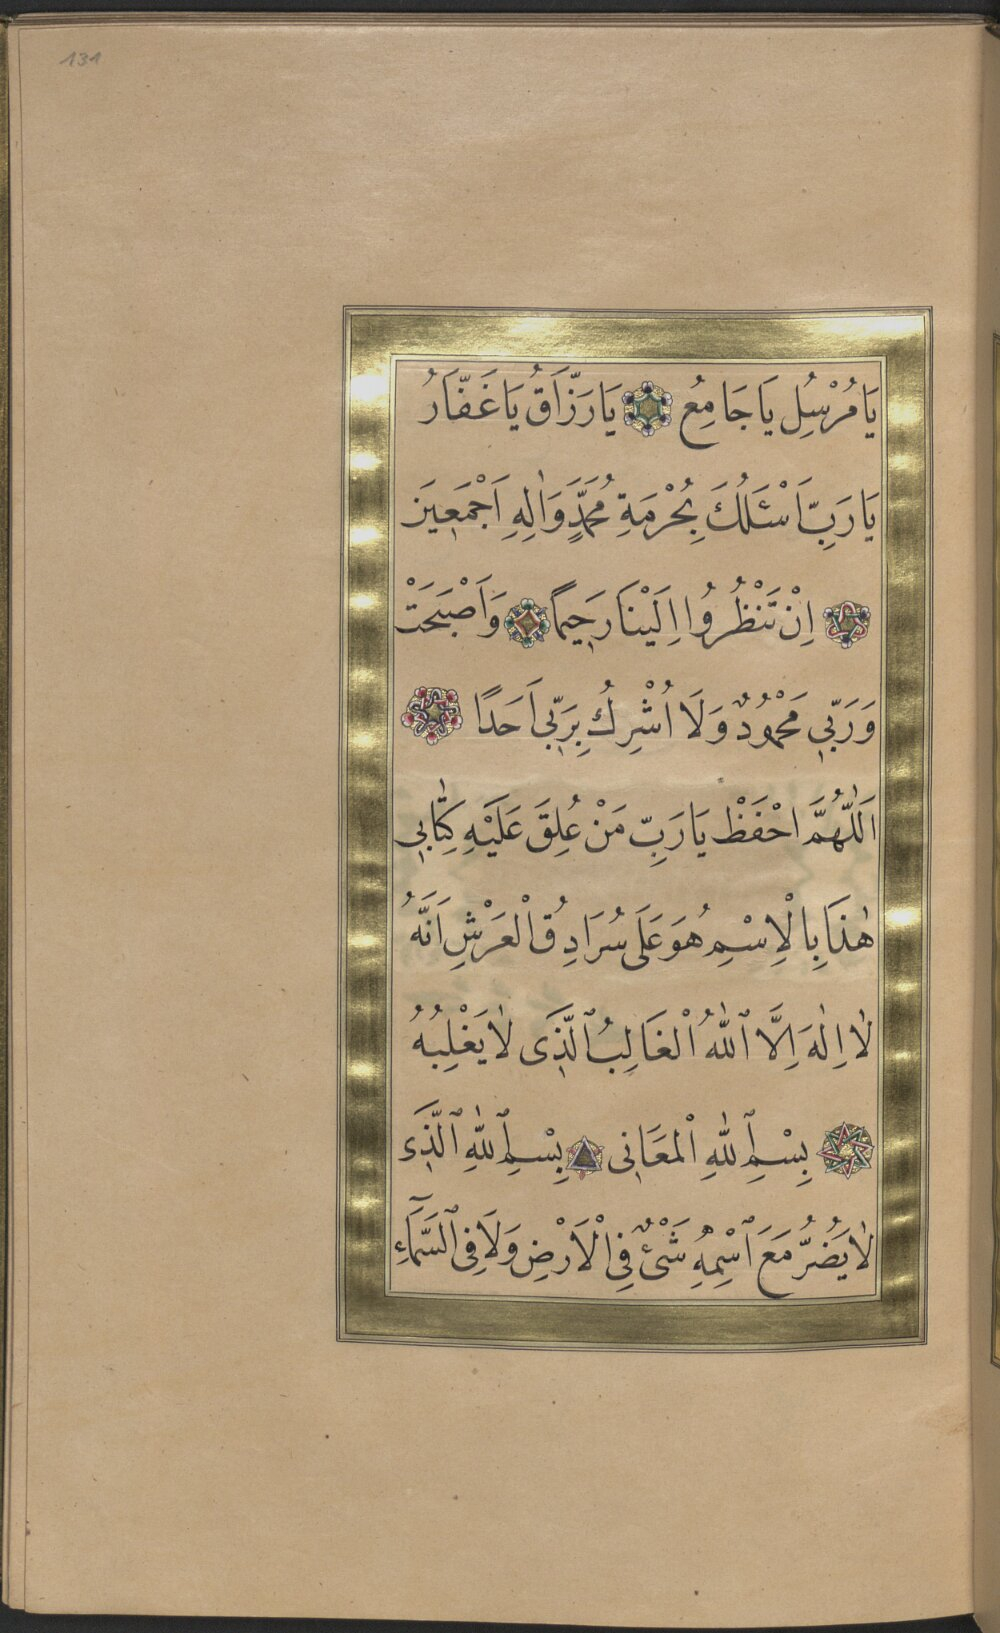 131
يَا مُرْسِل يَا جَامِعُ يَا رَزَّاقُ يَا غَفَّارُ
يَا رَبِّ اَسْئَلُكَ بِحُرْمَةِ مُحَمَّدٍ وَاٰلِهِ اَجْمَعِينَ
اِنْ تَنْظُرُوا اِلَيْنَا رَحِيمًا وَاَصْبَحَتْ
وَرَبِّي مَحْمُودٌ وَلَا اُشْرِكُ بِرَبِّي اَحَدًا
اَللّٰهُمَّ احْفَظْ يَا رَبِّ مَنْ عُلِقَ عَلَيْهِ كِتَابِي
هٰذَا بِالْاِسْمِ هُوَ عَلَى سُرَادِقُ الْعَرْشِ اَنَّهُ
لَا اِلٰهَ اِلَّا ٱللّٰهُ الْغَالِبُ ٱلَّذِى لَا يَغْلِبُهُ
بِسْمِ ٱللّٰهِ الْمَعَانِى بِسْمِ ٱللّٰهِ ٱلَّذِى
لَا يَضُرُّ مَعَ ٱسْمِهِ شَىْءٌ فِى الْاَرْضِ وَلَا فِى ٱلسَّمَٓاءِ